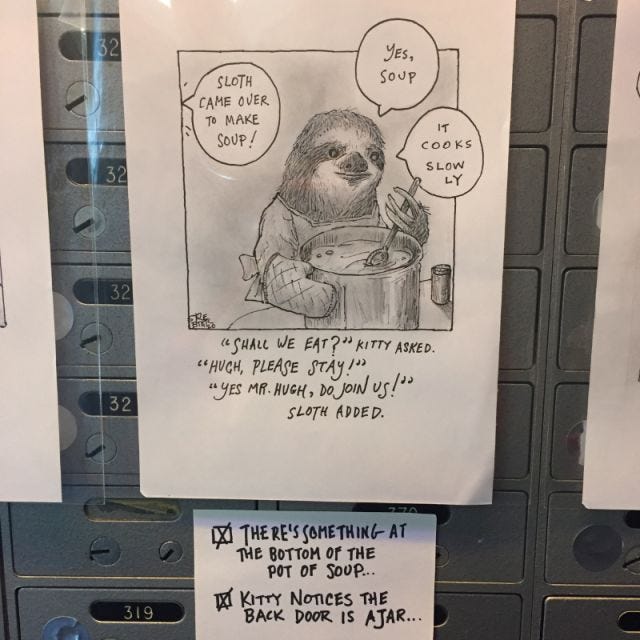 SLOTH
CAME OVER
TO MAKE
SOUP!
YES,
SOUP
IT
COOKS
SLOW
LY
"SHALL WE EAT?" KITTY ASKED.
"HUGH, PLEASE STAY!"
"YES MR. HUGH, DO JOIN US!"
SLOTH ADDED.
THERE'S SOMETHING AT
THE BOTTOM OF THE
POT OF SOUP...
KITTY NOTICES THE
BACK DOOR IS AJAR...
32
32
32
32
319